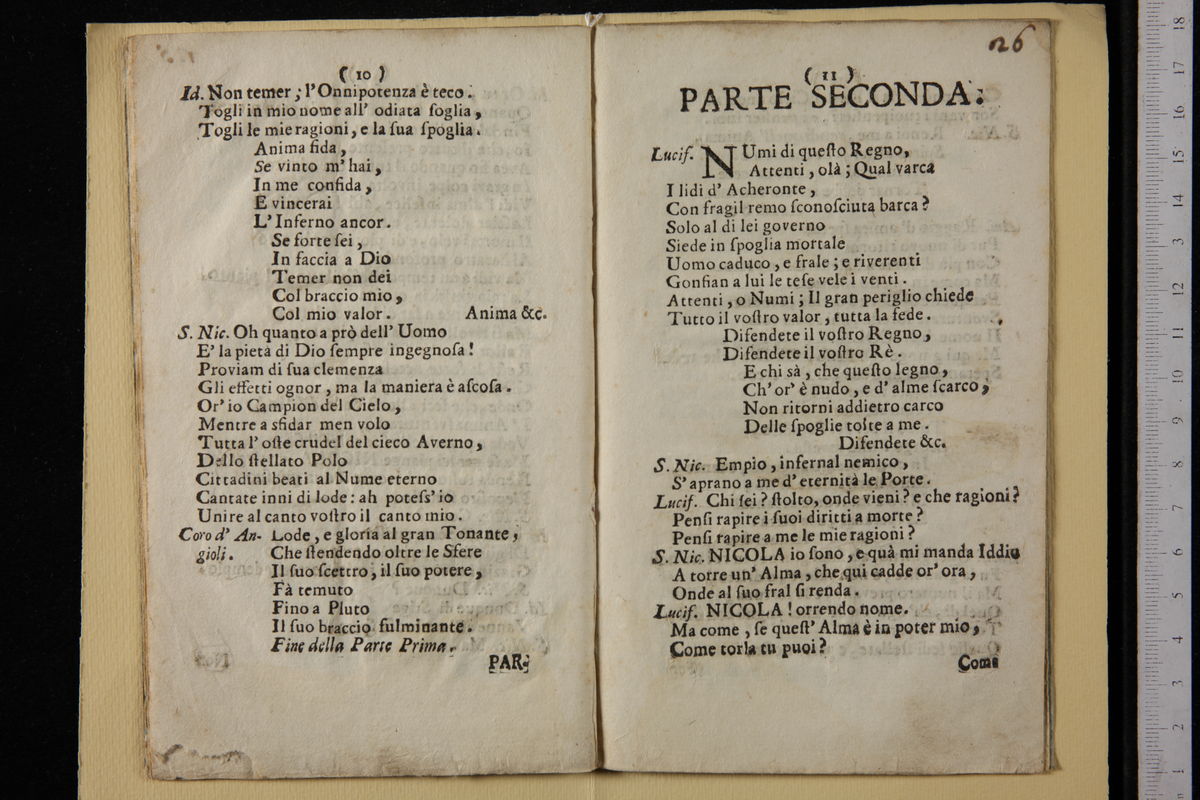 ( 10 )
Id. Non temer ; l'Onnipotenza è teco.
Togli in mio nome all' odiata ſoglia,
Togli le mie ragioni, e la ſua ſpoglia.
Anima fida,
Se vinto m' hai,
In me confida,
E vincerai
L'Inferno ancor.
Se forte ſei,
In faccia a Dio
Temer non dei
Col braccio mio,
Col mio valor. Anima &c.
S. Nic. Oh quanto a prò dell' Uomo
E' la pietà di Dio ſempre ingegnoſa!
Proviam di ſua clemenza
Gli effetti ognor, ma la maniera è aſcoſa.
Or' io Campion del Cielo,
Mentre a sfidar men volo
Tutta l' oſte crudel del cieco Averno,
Dello ſtellato Polo
Cittadini beati al Nume eterno
Cantate inni di lode: ah poteſs' io
Unire al canto voſtro il canto mio.
Coro d' An- Lode, e gloria al gran Tonante,
gioli. Che ſtendendo oltre le Sfere
Il ſuo ſcettro, il ſuo potere,
Fà temuto
Fino a Pluto
Il ſuo braccio fulminante.
Fine della Parte Prima.
PAR-
26
( 11 )
PARTE SECONDA.
Lucif. NUmi di queſto Regno,
Attenti, olà; Qual varca
I lidi d' Acheronte,
Con fragil remo ſconoſciuta barca?
Solo al di lei governo
Siede in ſpoglia mortale
Uomo caduco, e frale; e riverenti
Gonfian a lui le teſe vele i venti.
Attenti, o Numi; Il gran periglio chiede
Tutto il voſtro valor, tutta la fede.
Difendete il voſtro Regno,
Difendete il voſtro Rè.
E chi sà, che queſto legno,
Ch' or' è nudo, e d' alme ſcarco,
Non ritorni addietro carco
Delle ſpoglie tolte a me.
Difendete &c.
S. Nic. Empio, infernal nemico,
S' aprano a me d' eternità le Porte.
Lucif. Chi ſei? ſtolto, onde vieni? e che ragioni?
Penſi rapire i ſuoi diritti a morte?
Penſi rapire a me le mie ragioni?
S. Nic. NICOLA io ſono, e quà mi manda Iddio
A torre un' Alma, che qui cadde or' ora,
Onde al ſuo fral ſi renda.
Lucif. NICOLA! orrendo nome.
Ma come, ſe queſt' Alma è in poter mio,
Come torla tu puoi?
Come